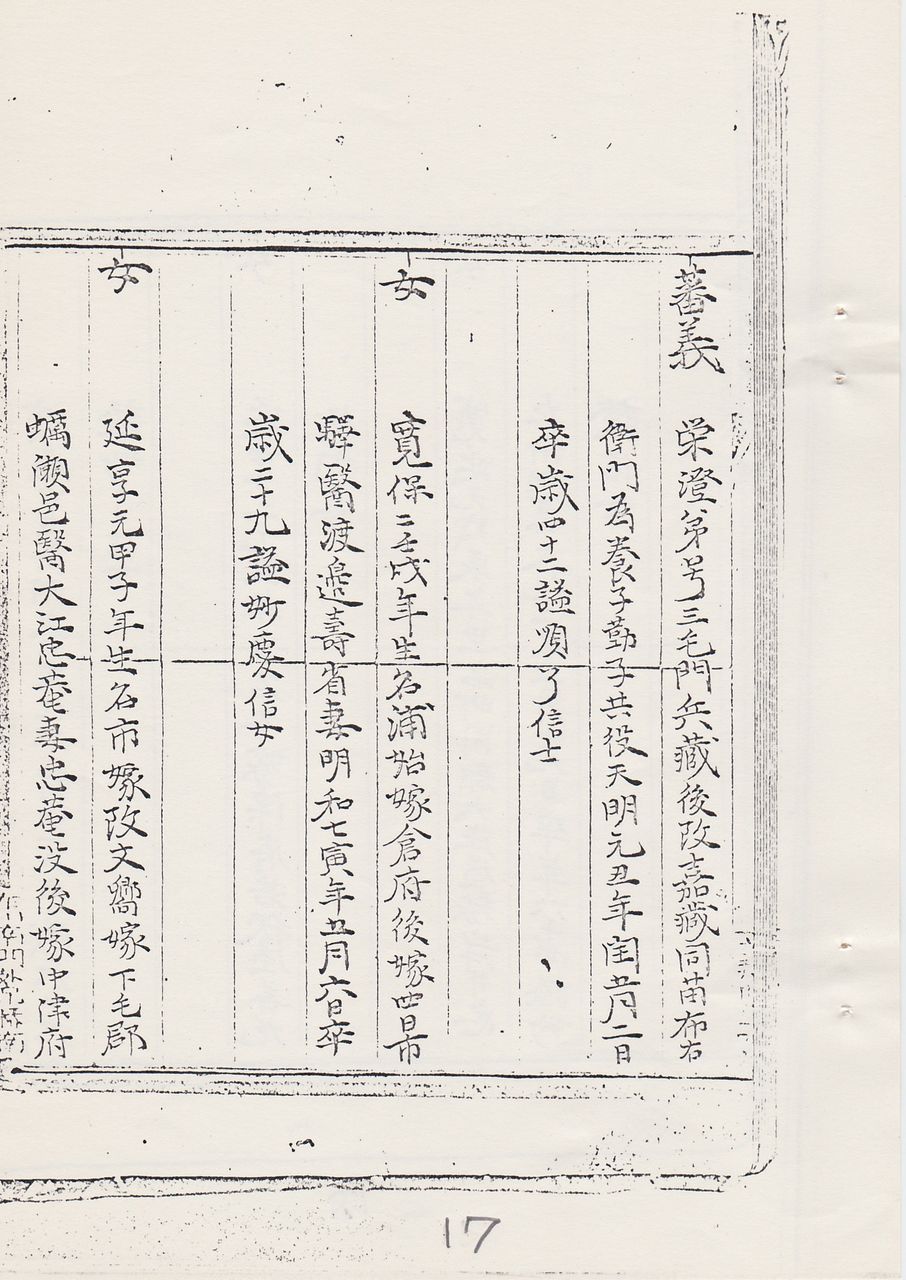 蕃義
栄澄弟号三毛門兵蔵後改嘉蔵同苗布右
衛門為養子勤子共役天明元丑年閏五月二日
卒歳四十二謚順了信士
女
寛保二壬戌年生名浦始嫁倉府後嫁四日市
驛醫渡邉壽省妻明和七寅年五月六日卒
歳二十九謚妙慶信女
女
延享元甲子年生名市嫁改文嫁下毛郡
蠣瀬邑醫大江忠菴妻忠菴没後嫁中津府
17